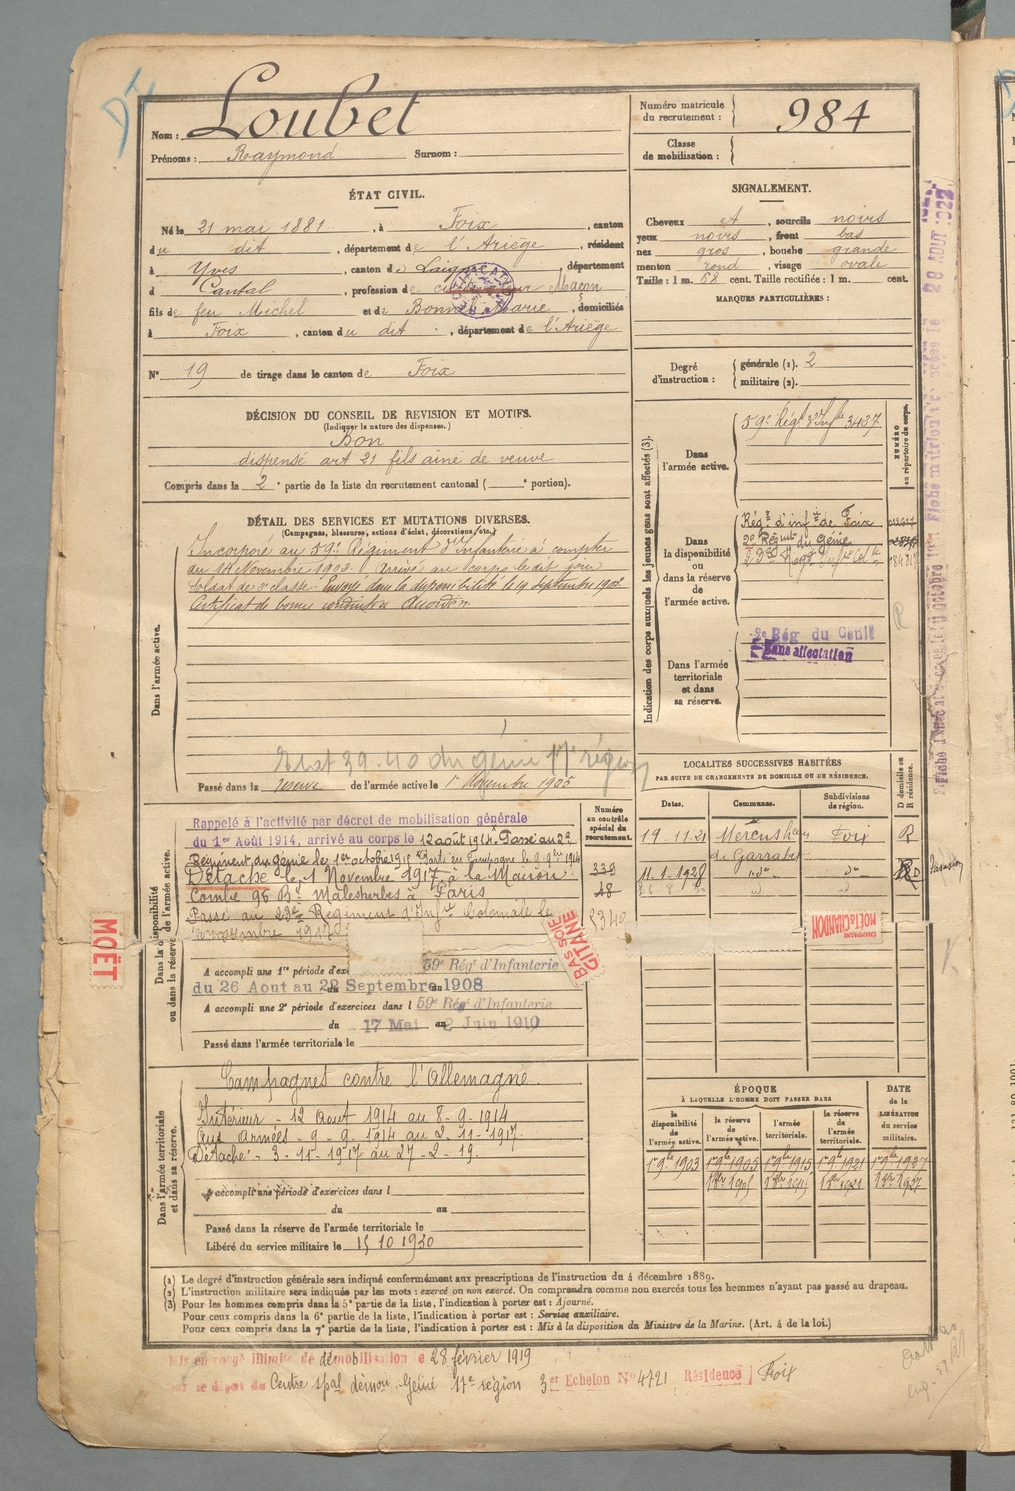 Nom : Loubet
Prénoms : Raymond Surnom :
Numéro matricule
du recrutement : 984
Classe
de mobilisation :
ÉTAT CIVIL.
Né le 21 mai 1881, à Foix, canton
du dit, département de l'Ariège, résidant
à Yves, canton de, département
d Cantal, profession de Maçon
fils de feu Michel et de Bonnel Marie, domiciliés
à Foix, canton du dit, département de l'Ariège
N° 19 de tirage dans le canton de Foix
DÉCISION DU CONSEIL DE REVISION ET MOTIFS.
(Indiquer la nature des dispenses.)
Bon
dispensé art 21 fils ainé de veuve
Compris dans la 2e partie de la liste du recrutement cantonal ( e portion).
SIGNALEMENT.
Cheveux et, sourcils noirs
yeux noirs, front bas
nez gros, bouche grande
menton rond, visage ovale
Taille : 1 m. 68 cent. Taille rectifiée : 1 m. cent.
MARQUES PARTICULIÈRES :
Degré
d'instruction :
générale (1). 2
militaire (2).
DÉTAIL DES SERVICES ET MUTATIONS DIVERSES.
(Campagnes, blessures, actions d'éclat, décorations, etc.)
Dans l'armée active.
Incorporé au 59e Régiment d'Infanterie à compter
du 14 Novembre 1902. Arrivé au corps le dit jour
Soldat de 2e classe. Envoyé dans la disponibilité le 19 septembre 1903
Certificat de bonne conduite accordé.
du génie 17e région
Passé dans la réserve de l'armée active le 1er Novembre 1905
Indication des corps auxquels les jeunes gens sont affectés (3).
NUMÉRO
au répertoire du corps.
Dans
l'armée active.
59e Régt d'Infie 3437
Dans
la disponibilité
ou
dans la réserve
de
l'armée active.
Régt d'infie de Foix
2e Régiment du Génie
Dans l'armée
territoriale
et dans
sa réserve.
2e Rég du Génie
Sans affectation
LOCALITES SUCCESSIVES HABITÉES
PAR SUITE DE CHANGEMENTS DE DOMICILE OU DE RÉSIDENCE.
Dates. Communes. Subdivisions
de région. D domicile ou
R résidence.
19.11.21 Foix R
de Garrabet
11.1.1928
Dans la disponibilité
ou dans la réserve de l'armée active.
Numéro
au contrôle
spécial du
recrutement.
Rappelé à l'activité par décret de mobilisation générale
du 1er Août 1914, arrivé au corps le 12 août 1914. Passé au 2e
Régiment du génie le 1er octobre 1915 Parti en Campagne le 9 9bre 1914
Détaché le 1 Novembre 1917, à la Maison
Combe 96 Bd Malesherbes à Paris
Passé au 23e Régiment d'Infie Coloniale le
novembre 1917
339
48
5340
MOËT
BAS SOIE
GITANE
CHAMPAGNE
MOËT & CHANDON
A accompli une 1re période d'exe 59e Rég d'Infanterie
du 26 Aout au 22 Septembre 1908
A accompli une 2e période d'exercices dans l 59e Rég d'Infanterie
du 17 Mai au 2 Juin 1910
Passé dans l'armée territoriale le
Dans l'armée territoriale
et dans sa réserve.
Campagnes contre l'Allemagne.
Intérieur - 12 Aout 1914 au 8-9-1914
Aux armées - 9-9-1914 au 2-11-1917.
Détaché - 3-11-1917 au 27-2-19.
A accompli une période d'exercices dans l
du au
Passé dans la réserve de l'armée territoriale le
Libéré du service militaire le 15 10 1930
ÉPOQUE
À LAQUELLE L'HOMME DOIT PASSER DANS
DATE
de la
LIBÉRATION
du service
militaire.
la
disponibilité
de
l'armée active.
la réserve
de
l'armée active.
l'armée
territoriale.
la réserve
de
l'armée
territoriale.
1er 9bre 1903 1er 9bre 1905 1er 9bre 1915 1er 9bre 1921 1er 9bre 1927
(1) Le degré d'instruction générale sera indiqué conformément aux prescriptions de l'instruction du 4 décembre 1889.
(2) L'instruction militaire sera indiquée par les mots : exercé ou non exercé. On comprendra comme non exercés tous les hommes n'ayant pas passé au drapeau.
(3) Pour les hommes compris dans la 5e partie de la liste, l'indication à porter est : Ajourné.
Pour ceux compris dans la 6e partie de la liste, l'indication à porter est : Service auxiliaire.
Pour ceux compris dans la 7e partie de la liste, l'indication à porter est : Mis à la disposition du Ministre de la Marine. (Art. 4 de la loi.)
Mis en congé illimité de démobilisation le 28 février 1919
par le dépôt du Centre spal démon. Génie 17e région 3e Echelon N° 4421 Résidence Foix